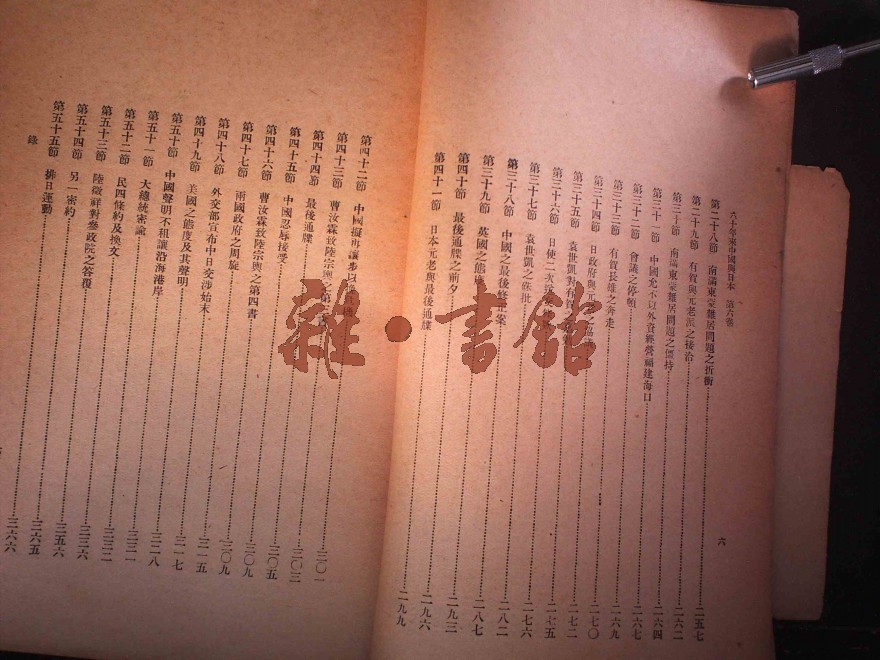 六十年來中國與日本 第六卷 六
第二十八節 南滿東蒙雜居問題之折衝 二五七
第二十九節 有賀與元老派之接洽 二六二
第三十節 南滿東蒙雜居問題之僵持 二六四
第三十一節 中國允不以外資經營福建海口 二六七
第三十二節 會議之停頓 二六九
第三十三節 有賀長雄之奔走 二七〇
第三十四節 日政府與元老 二七二
第三十五節 袁世凱對有賀之 二七五
第三十六節 日使二次 二七六
第三十七節 袁世凱之硃批 二八二
第三十八節 中國之最後修正案 二八七
第三十九節 英國之態度 二九三
第四十節 最後通牒之前夕 二九六
第四十一節 日本元老與最後通牒 二九九
第四十二節 中國擬再讓步以 三〇一
第四十三節 曹汝霖致陸宗輿之第三 三〇三
第四十四節 最後通牒 三〇五
第四十五節 中國忍辱接受 三〇九
第四十六節 曹汝霖致陸宗輿之第四書 三〇九
第四十七節 兩國政府之周旋 三一五
第四十八節 外交部宣布中日交涉始末 三一七
第四十九節 美國之態度及其聲明 三一八
第五十節 中國聲明不租讓沿海港岸 三二一
第五十一節 大總統密諭 三二二
第五十二節 民四條約及換文 三三六
第五十三節 陸徵祥對參政院之答覆 三五六
第五十四節 另一密約 三六五
第五十五節 排日運動 三六六
錄
雜·書館